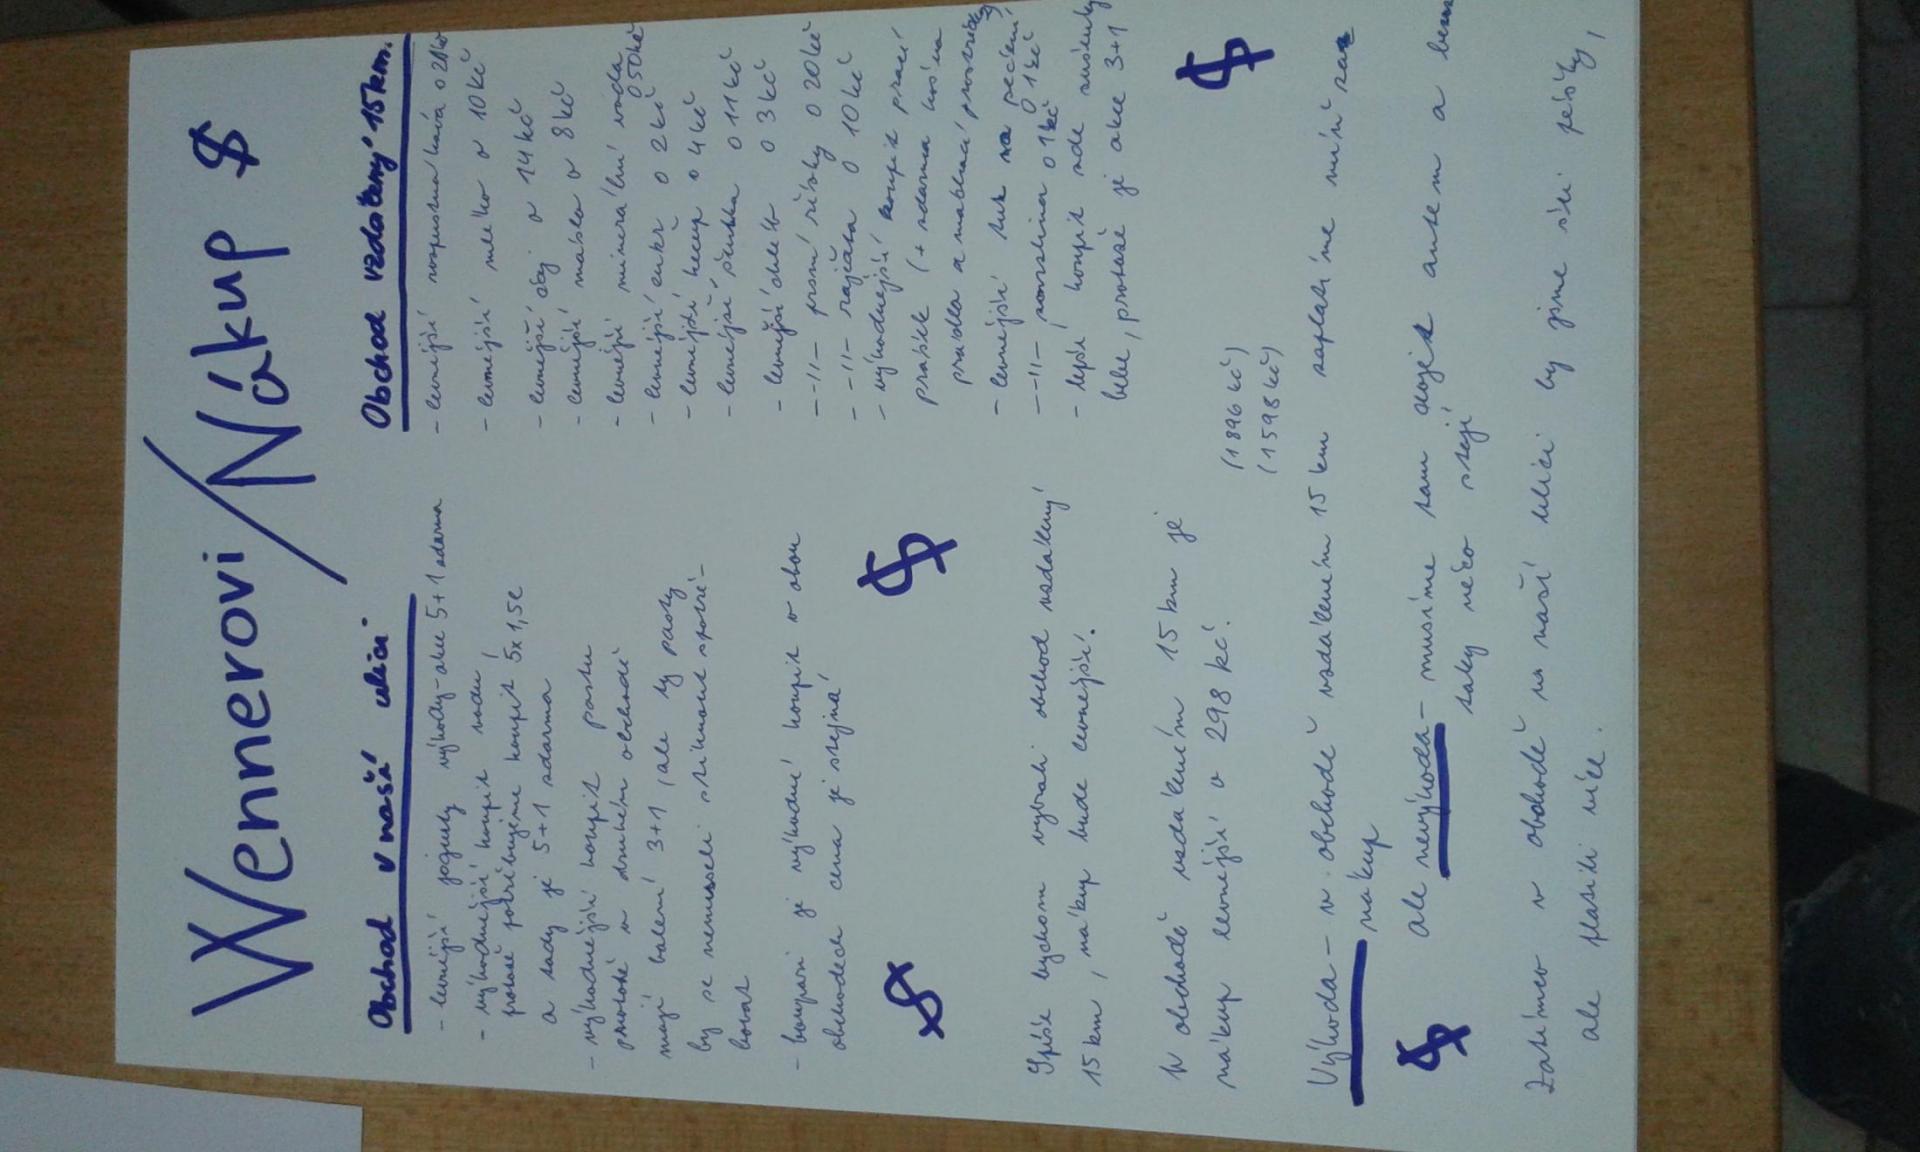 Wennerovi / Nákup $
Obchod v naší ulici
- levnější jogurty výhody - akce 5+1 zdarma
- výhodnější koupit vodu,
protože potřebujeme koupit 5x1,5l
a tady je 5+1 zdarma
- výhodnější koupit pastu
protože v druhém obchodě
mají balení 3+1, ale ty pasty
by se nemuseli stihnout spotře-
bovat
- koupání je výhodné koupit v obou
obchodech cena je stejná
$ $
Obchod vzdálený 15km.
- levnější rozpustná káva o 21kč
- levnější mléko o 10kč
- levnější olej o 14kč
- levnější máslo o 8kč
- levnější minerální voda
o 50kč
- levnější cukr o 2kč
- levnější kečup o 4kč
- levnější šunka o 11kč
- levnější o 3kč
- -11- prsní řízky o 20kč
- -11- rajčata o 10kč
- výhodnější koupit prací
prášek (+ zdarma
prádla a
- levnější tuk na pečení
o 1kč
- -11- o 1kč
- lepší koupit zde sušenky
bebe, protože je akce 3+1
$
Spíše bychom vybrali obchod vzdálený
15km, nákup bude levnější.
V obchodě vzdáleném 15km je (1896 kč)
nákup levnější o 298 kč. (1598 kč)
Výhoda - v obchodě vzdáleném 15km zaplatíme míň za
nákup
ale nevýhoda - musíme tam dojet autem a
taky něco stojí
$
Zatímco v obchodě na naší ulici by jsme šli pěšky,
ale platili více.